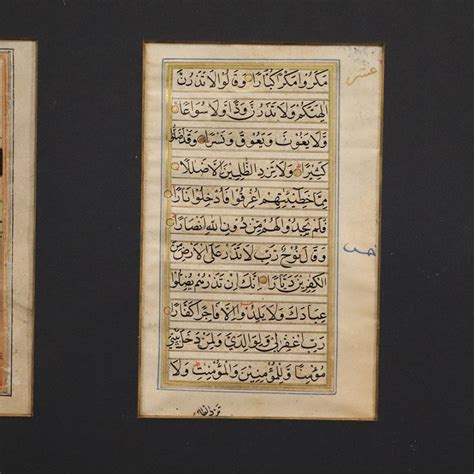 مَكَرُوا مَكْرًا كُبَّارًا وَقَالُوا لَا تَذَرُنَّ
عشر
اٰلِهَتَكُمْ وَلَا تَذَرُنَّ وَدًّا وَلَا سُوَاعًا
وَلَا يَغُوثَ وَيَعُوقَ وَنَسْرًا وَقَدْ اَضَلُّوا
كَثِيرًا وَلَا تَزِدِ الظّٰلِمِينَ اِلَّا ضَلَالًا
مِمَّا خَطِيئَاتِهِمْ اُغْرِقُوا فَاُدْخِلُوا نَارًا
فَلَمْ يَجِدُوا لَهُمْ مِنْ دُونِ اللهِ اَنْصَارًا
وَقَالَ نُوحٌ رَبِّ لَا تَذَرْ عَلَى الْاَرْضِ مِنَ
الْكٰفِرِينَ دَيَّارًا اِنَّكَ اِنْ تَذَرْهُمْ يُضِلُّوا
عِبَادَكَ وَلَا يَلِدُوا اِلَّا فَاجِرًا كَفَّارًا
رَبِّ اغْفِرْ لِي وَلِوَالِدَيَّ وَلِمَنْ دَخَلَ بَيْتِيَ
مُؤْمِنًا وَلِلْمُؤْمِنِينَ وَالْمُؤْمِنٰتِ وَلَا